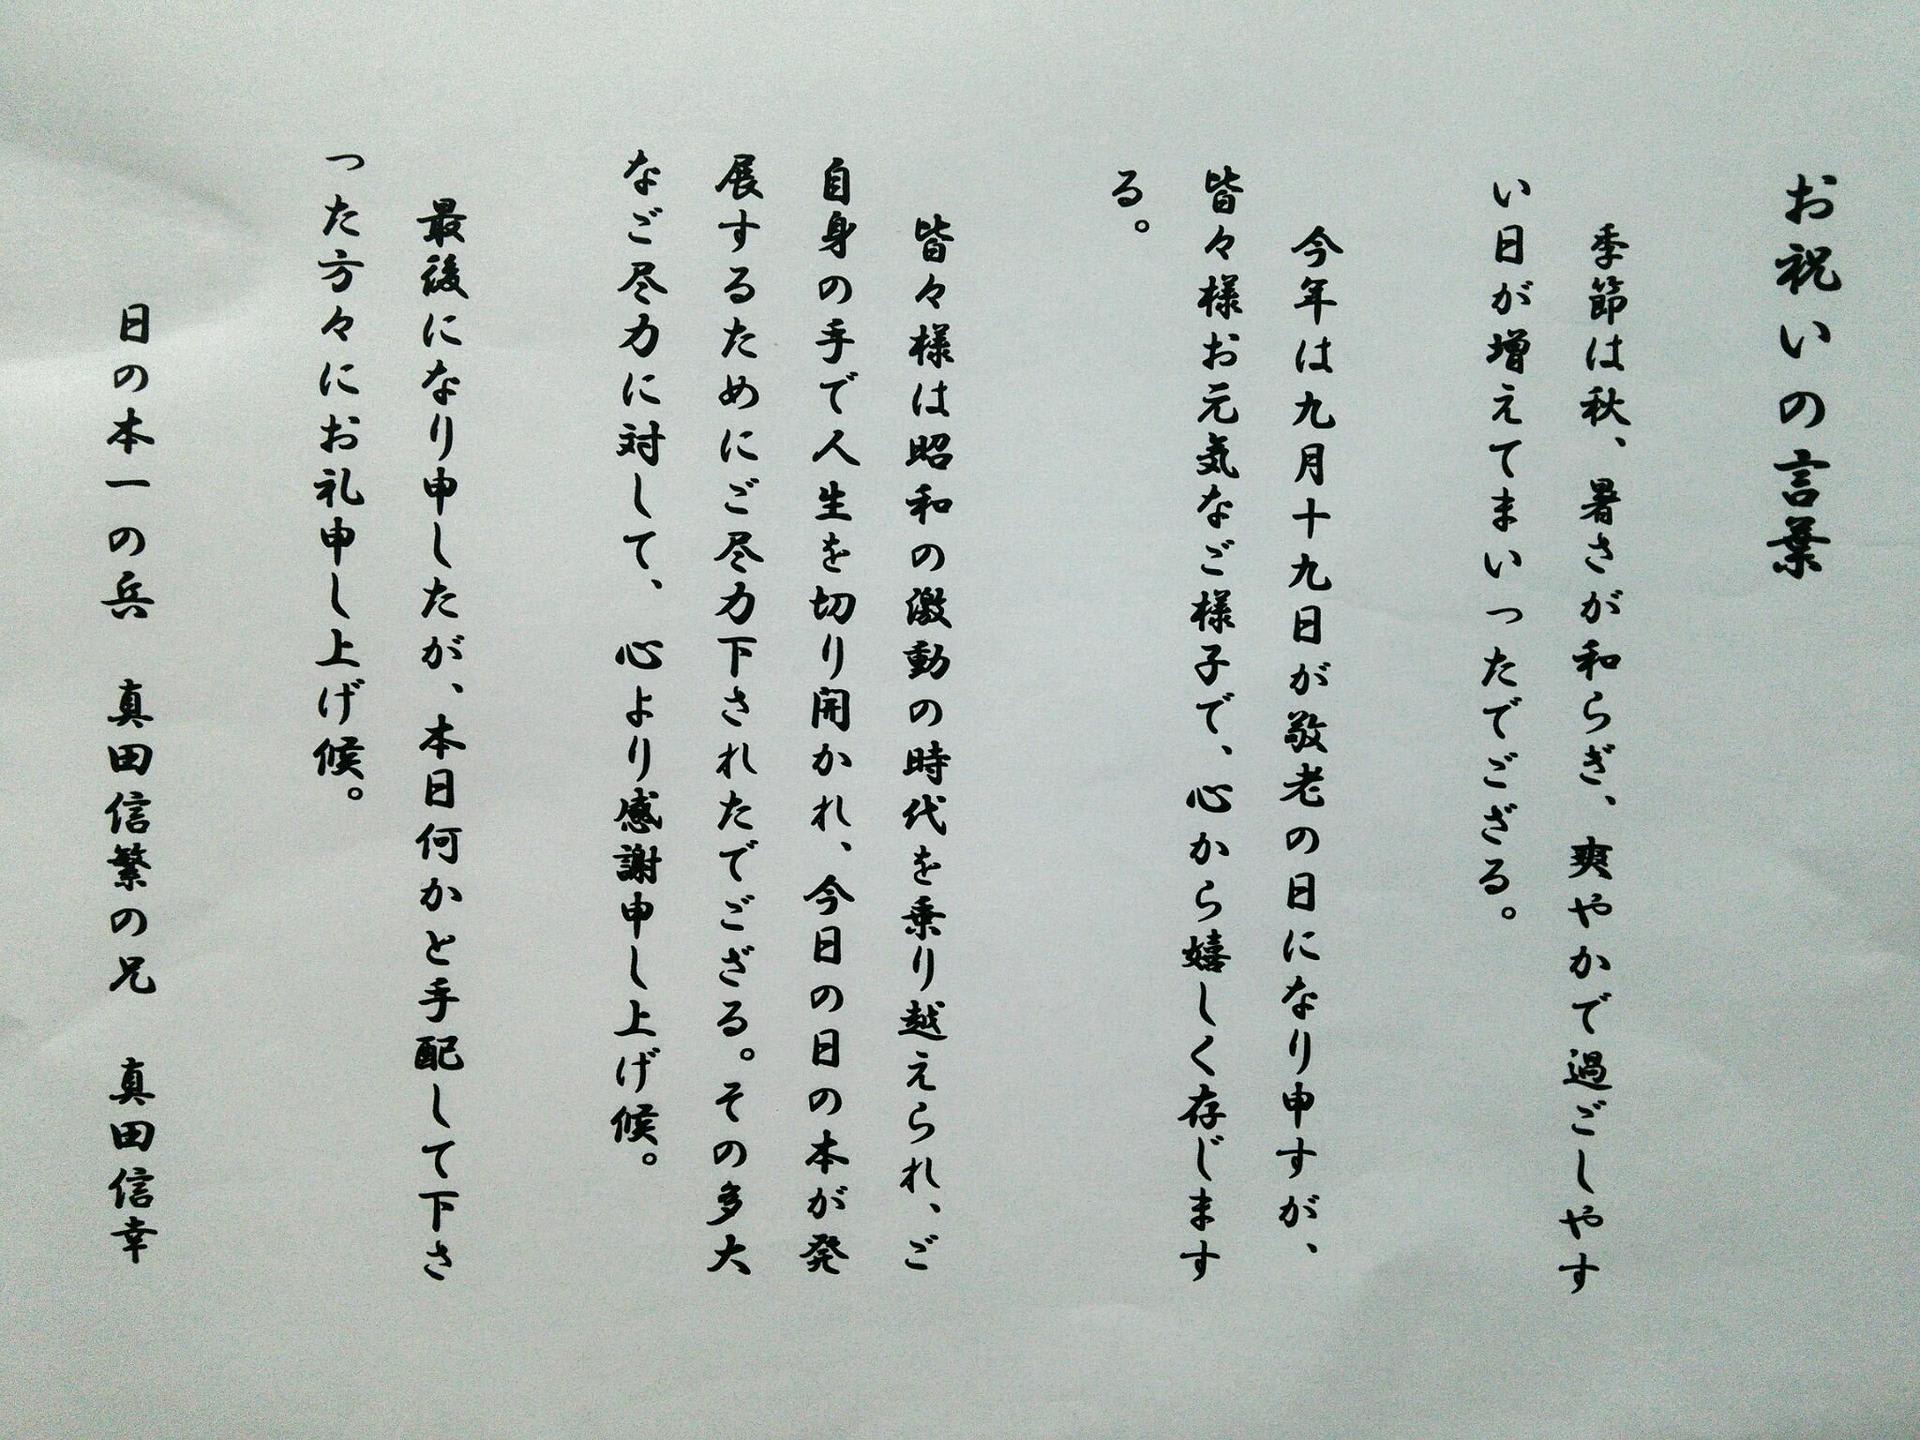 お祝いの言葉
季節は秋、暑さが和らぎ、爽やかで過ごしやす
い日が増えてまいったでござる。
今年は九月十九日が敬老の日になり申すが、
皆々様お元気なご様子で、心から嬉しく存じます
る。
皆々様は昭和の激動の時代を乗り越えられ、ご
自身の手で人生を切り開かれ、今日の日の本が発
展するためにご尽力下されたでござる。その多大
なご尽力に対して、心より感謝申し上げ候。
最後になり申したが、本日何かと手配して下さ
った方々にお礼申し上げ候。
日の本一の兵　真田信繁の兄　真田信幸